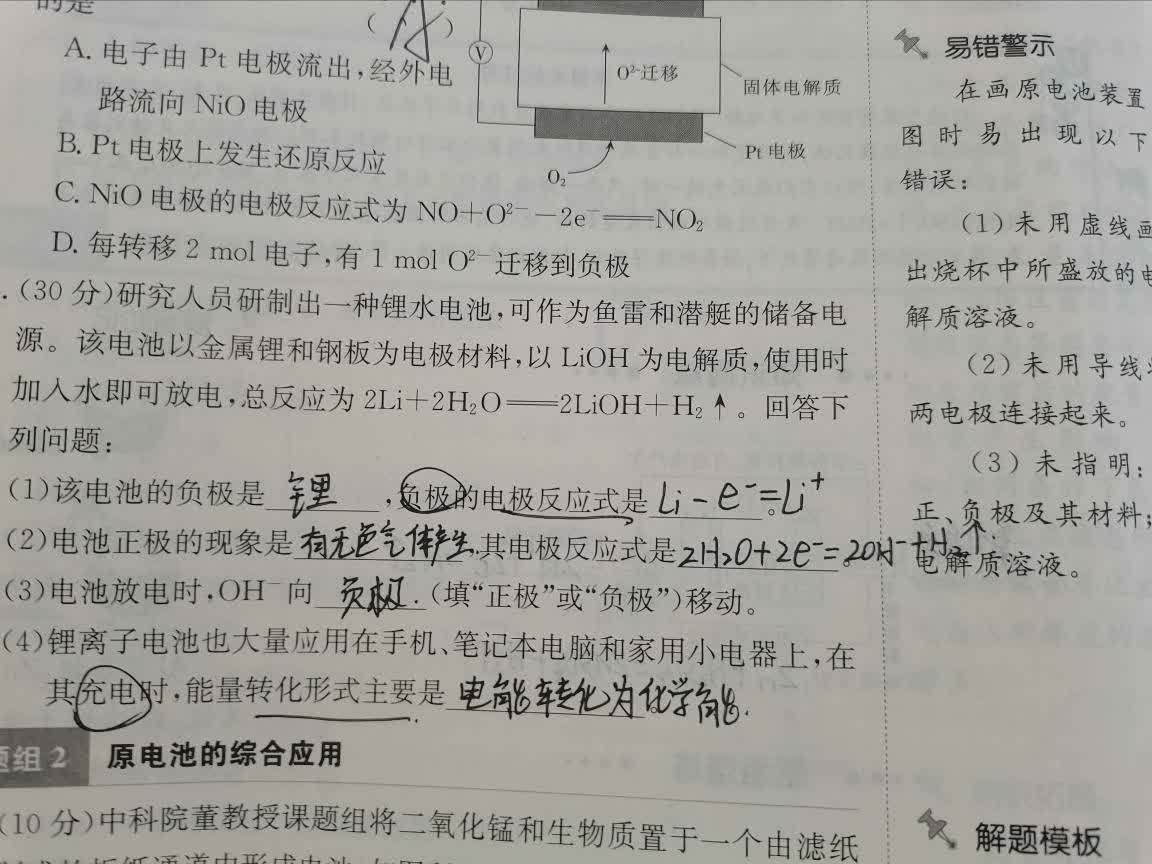 的是
(A)
A. 电子由 Pt 电极流出,经外电
路流向 NiO 电极
B. Pt 电极上发生还原反应
C. NiO 电极的电极反应式为 NO+O²⁻-2e⁻══NO₂
D. 每转移 2 mol 电子,有 1 mol O²⁻ 迁移到负极
V
O²⁻迁移
固体电解质
Pt 电极
O₂
.(30 分)研究人员研制出一种锂水电池,可作为鱼雷和潜艇的储备电
源。该电池以金属锂和钢板为电极材料,以 LiOH 为电解质,使用时
加入水即可放电,总反应为 2Li+2H₂O══2LiOH+H₂↑。回答下
列问题:
(1)该电池的负极是 锂 ,负极的电极反应式是 Li-e⁻=Li⁺ 。
(2)电池正极的现象是 有无色气体产生.其电极反应式是 2H₂O+2e⁻=2OH⁻+H₂↑ 。
(3)电池放电时,OH⁻向 负极.(填“正极”或“负极”)移动。
(4)锂离子电池也大量应用在手机、笔记本电脑和家用小电器上,在
其充电时,能量转化形式主要是 电能转化为化学能.
题组 2 原电池的综合应用
(10 分)中科院董教授课题组将二氧化锰和生物质置于一个由滤纸
易错警示
在画原电池装置
图时易出现以下
错误:
(1)未用虚线画
出烧杯中所盛放的电
解质溶液。
(2)未用导线将
两电极连接起来。
(3)未指明:
正、负极及其材料;
电解质溶液。
解题模板